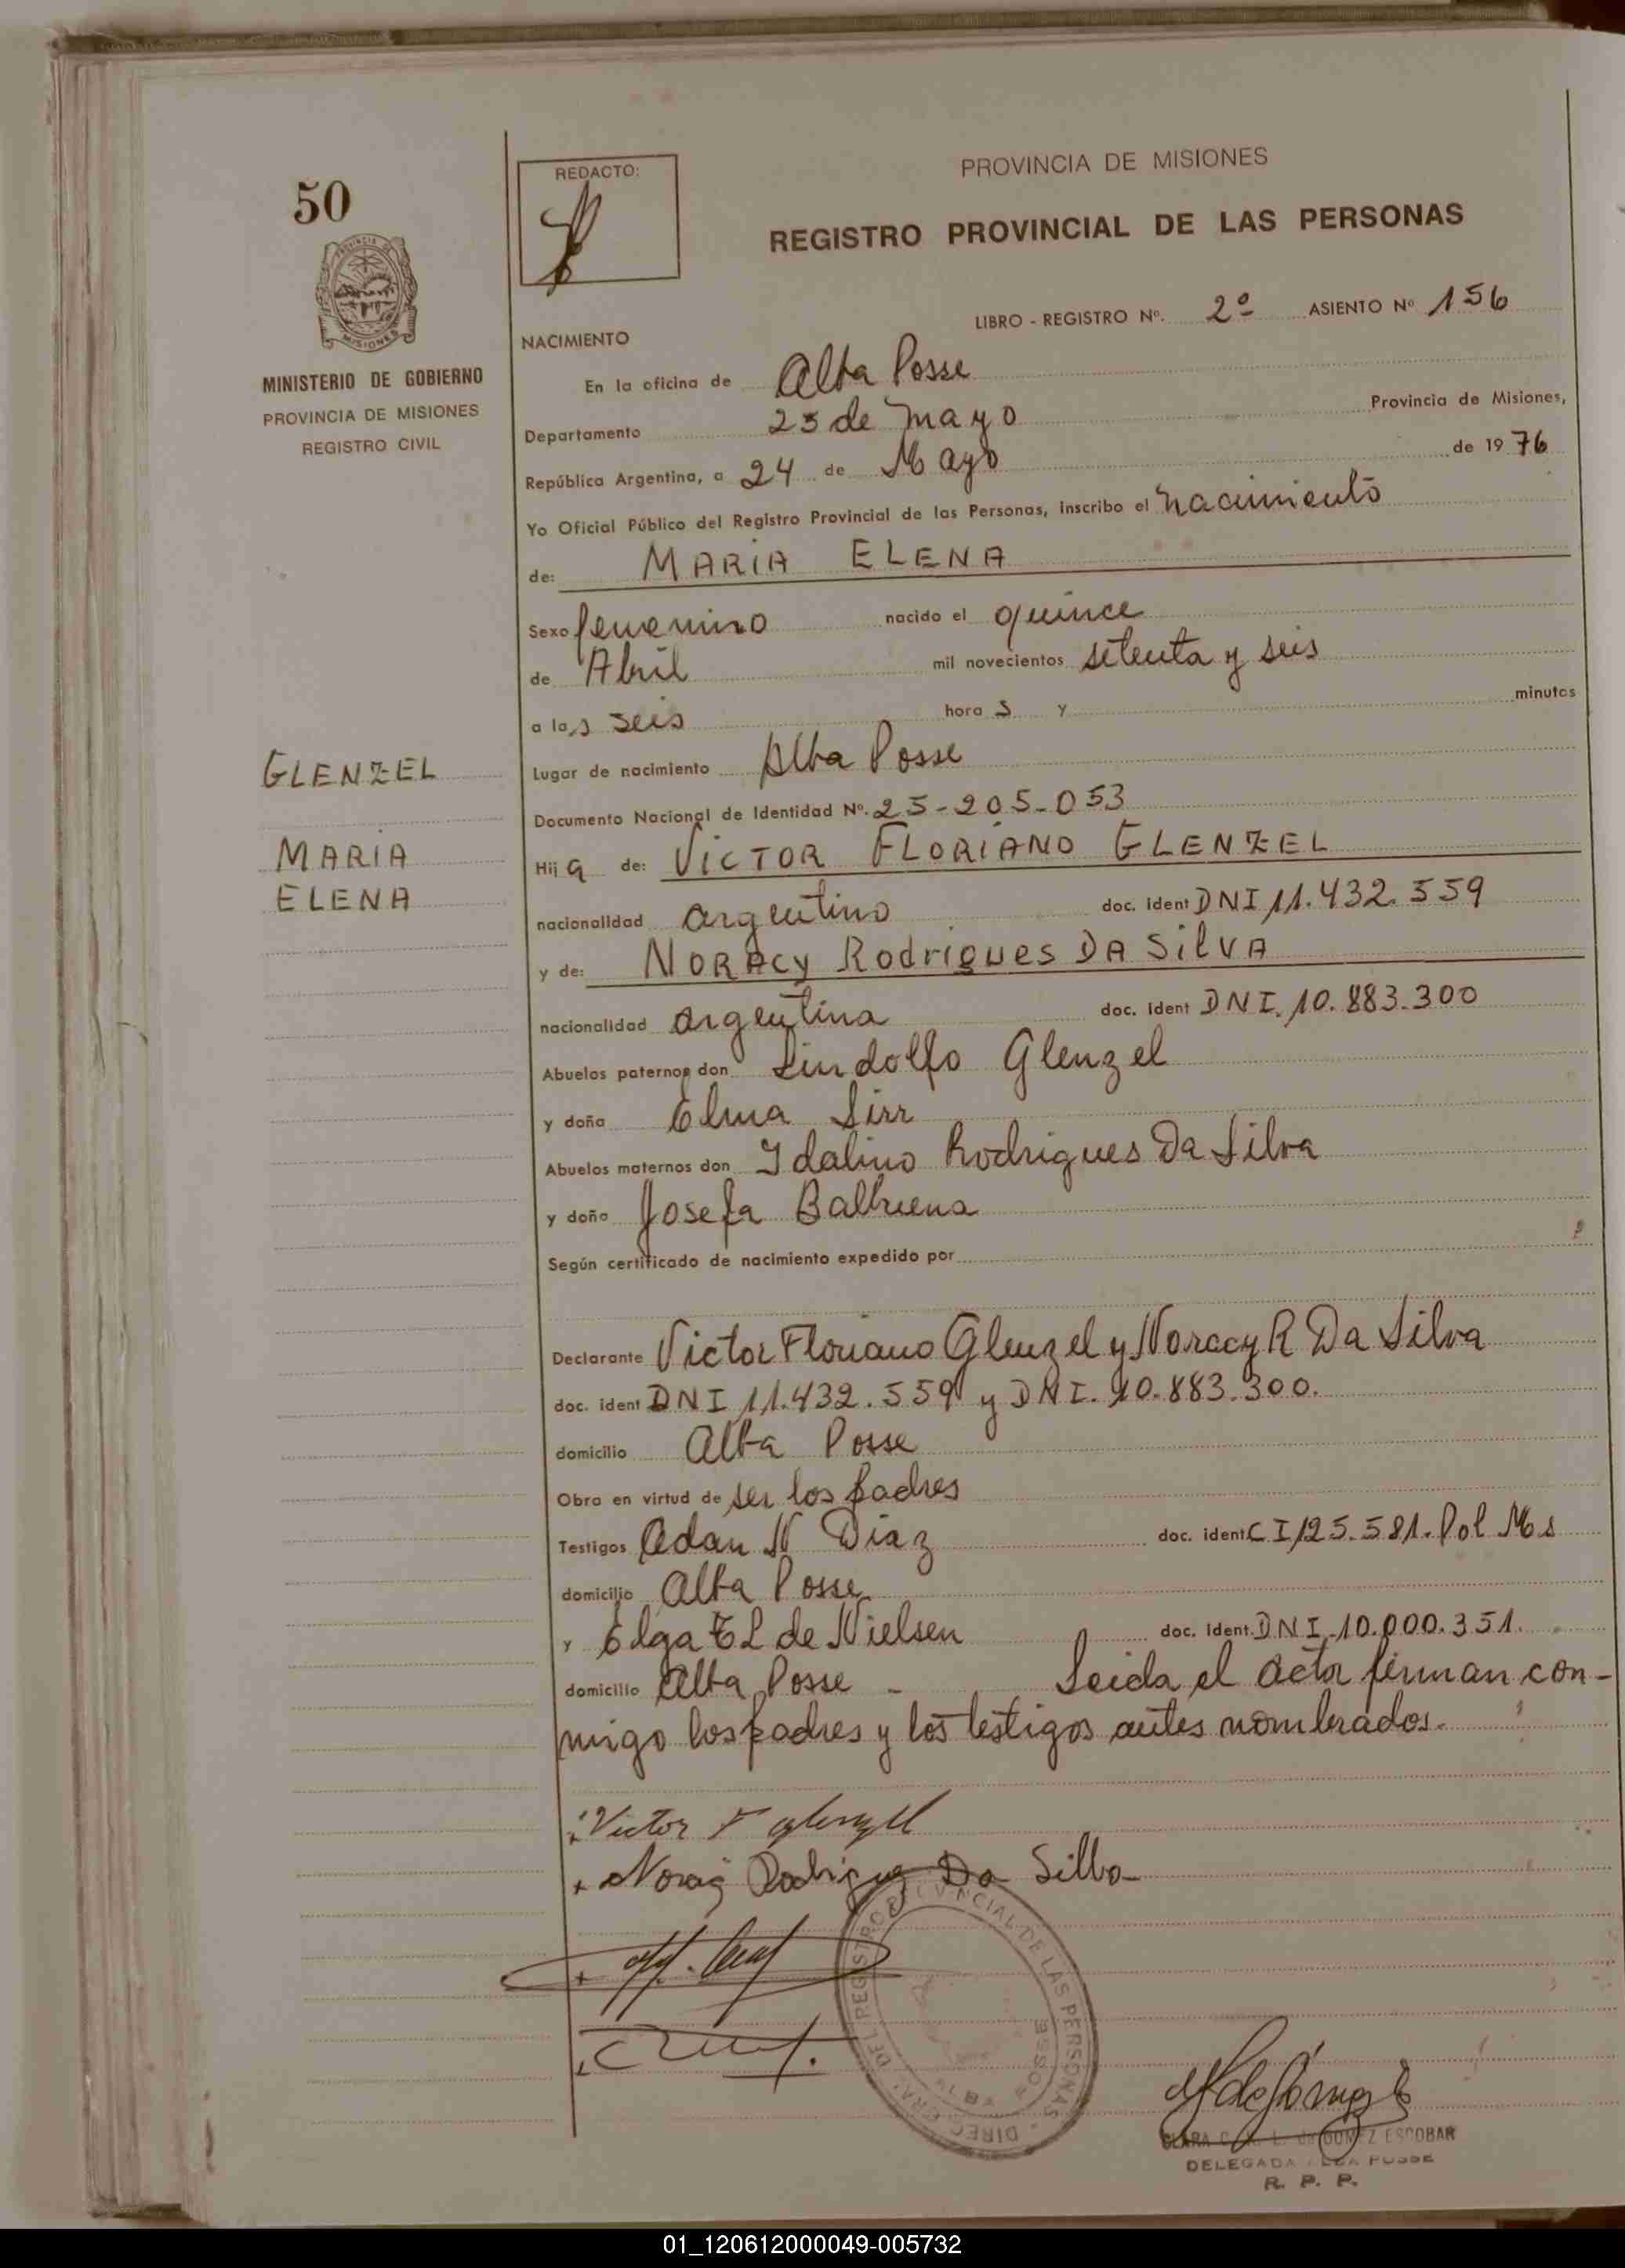 50
REDACTO:
PROVINCIA DE MISIONES
REGISTRO PROVINCIAL DE LAS PERSONAS
PROVINCIA DE
MISIONES
MINISTERIO DE GOBIERNO
PROVINCIA DE MISIONES
REGISTRO CIVIL
LIBRO - REGISTRO Nº. 2º ASIENTO Nº 156
NACIMIENTO
En la oficina de Alba Posse
Departamento 25 de Mayo Provincia de Misiones,
República Argentina, a 24 de Mayo de 1976
Yo Oficial Público del Registro Provincial de las Personas, inscribo el nacimiento
de: MARIA ELENA
Sexo femenino nacido el quince
de Abril mil novecientos setenta y seis
a las seis hora s y minutos
GLENZEL
Lugar de nacimiento Alba Posse
Documento Nacional de Identidad Nº. 25-205-053
MARIA
Hija de: VICTOR FLORIANO GLENZEL
ELENA
nacionalidad argentino doc. ident DNI 11.432.559
y de: NORACY Rodrigues DA SilVA
nacionalidad argentina doc. ident DNI. 10.883.300
Abuelos paternos don Lindolfo Glenzel
y doña Elma Lirr
Abuelos maternos don Idalino Rodrigues Da Silva
y doña Josefa Balbuena
Según certificado de nacimiento expedido por
Declarante Victor Floriano Glenzel y Noracy R Da Silva
doc. ident DNI 11.432.559 y DNI. 10.883.300.
domicilio Alba Posse
Obra en virtud de ser los padres
Testigos Adan N Diaz doc. ident CI 125.581. Pol Ms
domicilio Alba Posse
y Elga E L de Nielsen doc. ident. DNI 10.000.351.
domicilio Alba Posse - Leida el acta firman con-
migo los padres y los testigos antes nombrados.
Victor F Glenzel
Noracy Rodrigues Da Silba
DIREC. GRAL. DEL REGISTRO PROVINCIAL DE LAS PERSONAS
ALBA POSSE
CLARA C. L. de GOMEZ ESCOBAR
DELEGADA ALBA POSSE
R. P. P.
01_120612000049-005732